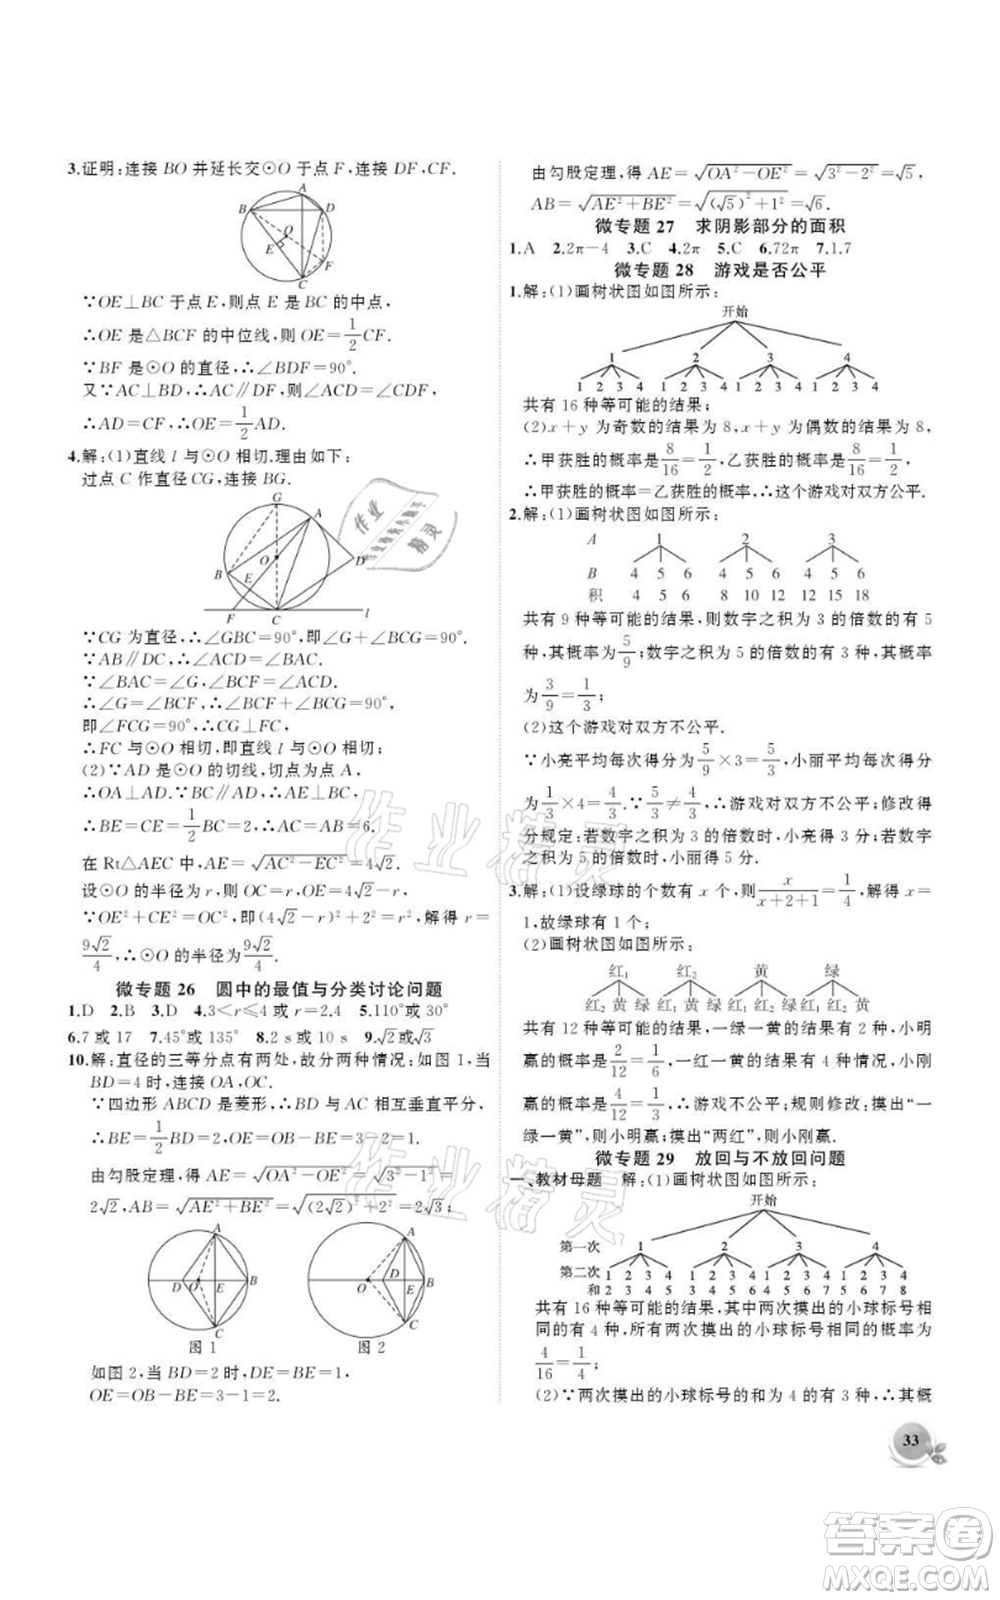 3.证明:连接 BO 并延长交⊙O 于点 F,连接 DF,CF.
A
B
D
O
E
F
C
∵OE⊥BC 于点 E,则点 E 是 BC 的中点,
∴OE 是△BCF 的中位线,则 OE=1/2CF.
∵BF 是⊙O 的直径,∴∠BDF=90°.
又∵AC⊥BD,∴AC∥DF,则∠ACD=∠CDF,
∴AD=CF,∴OE=1/2AD.
4.解:(1)直线 l 与⊙O 相切.理由如下:
过点 C 作直径 CG,连接 BG.
G
A
O
B
E
D
F
C
l
∵CG 为直径,∴∠GBC=90°,即∠G+∠BCG=90°.
∵AB∥DC,∴∠ACD=∠BAC.
∵∠BAC=∠G,∠BCF=∠ACD.
∴∠G=∠BCF,∴∠BCF+∠BCG=90°.
即∠FCG=90°,∴CG⊥FC,
∴FC 与⊙O 相切,即直线 l 与⊙O 相切;
(2)∵AD 是⊙O 的切线,切点为点 A,
∴OA⊥AD.∵BC∥AD,∴AE⊥BC,
∴BE=CE=1/2BC=2,∴AC=AB=6.
在 Rt△AEC 中,AE=√(AC²-EC²)=4√2.
设⊙O 的半径为 r,则 OC=r,OE=AE-OA=4√2-r,
∵OE²+CE²=OC²,即(4√2-r)²+2²=r²,解得 r=
9√2/4,∴⊙O 的半径为9√2/4.
微专题 26 圆中的最值与分类讨论问题
1.D 2.B 3.D 4.3<r≤4 或 r=2.4 5.110°或 30°
6.7 或 17 7.45°或 135° 8.2 s 或 10 s 9.√2或√3
10.解:直径的三等分点有两处,故分两种情况:如图 1,当
BD=4 时,连接 OA,OC.
∵四边形 ABCD 是菱形,∴BD 与 AC 相互垂直平分,
∴BE=1/2BD=2,OE=OB-BE=3-2=1.
由勾股定理,得 AE=√(OA²-OE²)=√(3²-1²)=
2√2,AB=√(AE²+BE²)=√((2√2)²+2²)=2√3;
A
D O E B
C
图 1
A
O D E B
C
图 2
如图 2,当 BD=2 时,DE=BE=1,
OE=OB-BE=3-1=2.
由勾股定理,得 AE=√(OA²-OE²)=√(3²-2²)=√5,
AB=√(AE²+BE²)=√((√5)²+1²)=√6.
微专题 27 求阴影部分的面积
1.A 2.2π-4 3.C 4.2π 5.C 6.72π 7.1.7
微专题 28 游戏是否公平
1.解:(1)画树状图如图所示:
开始
1 2 3 4
1 2 3 4 1 2 3 4 1 2 3 4 1 2 3 4
共有 16 种等可能的结果;
(2)x+y 为奇数的结果为 8,x+y 为偶数的结果为 8,
∴甲获胜的概率是8/16=1/2,乙获胜的概率是8/16=1/2,
∴甲获胜的概率=乙获胜的概率,∴这个游戏对双方公平.
2.解:(1)画树状图如图所示:
A 1 2 3
B 4 5 6 4 5 6 4 5 6
积 4 5 6 8 10 12 12 15 18
共有 9 种等可能的结果,则数字之积为 3 的倍数的有 5
种,其概率为5/9;数字之积为 5 的倍数的有 3 种,其概率
为3/9=1/3;
(2)这个游戏对双方不公平.
∵小亮平均每次得分为5/9×3=5/3,小丽平均每次得分
为1/3×4=4/3.∵5/3≠4/3,∴游戏对双方不公平;修改得
分规定:若数字之积为 3 的倍数时,小亮得 3 分;若数字
之积为 5 的倍数时,小丽得 5 分.
3.解:(1)设绿球的个数有 x 个,则x/(x+2+1)=1/4,解得 x=
1,故绿球有 1 个;
(2)画树状图如图所示:
红₁ 红₂ 黄 绿
红₂ 黄 绿 红₁ 黄 绿 红₁ 红₂ 绿 红₁ 红₂ 黄
共有 12 种等可能的结果,一绿一黄的结果有 2 种,小明
赢的概率是2/12=1/6,一红一黄的结果有 4 种情况,小刚
赢的概率是4/12=1/3,∴游戏不公平;规则修改:摸出“一
绿一黄”,则小明赢;摸出“两红”,则小刚赢.
微专题 29 放回与不放回问题
一、教材母题 解:(1)画树状图如图所示:
开始
第一次 1 2 3 4
第二次 1 2 3 4 1 2 3 4 1 2 3 4 1 2 3 4
和 2 3 4 5 3 4 5 6 4 5 6 7 5 6 7 8
共有 16 种等可能的结果,其中两次摸出的小球标号相
同的有 4 种,所有两次摸出的小球标号相同的概率为
4/16=1/4;
(2)∵两次摸出的小球标号的和为 4 的有 3 种,∴其概
33
作业精灵
作业精灵
答案卷
MXQE.COM